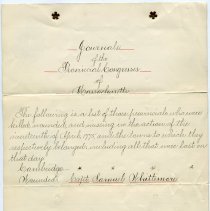 Journals
of the
Provincial Congress
of
Massachusetts
The following is a list of those provincials who were
killed, wounded, and missing in the action of the
nineteenth of April 1775, and the towns to which they
respectively belonged, including all that were lost on
that day.
Cambridge
Wounded Capt. Samuel Whittemore